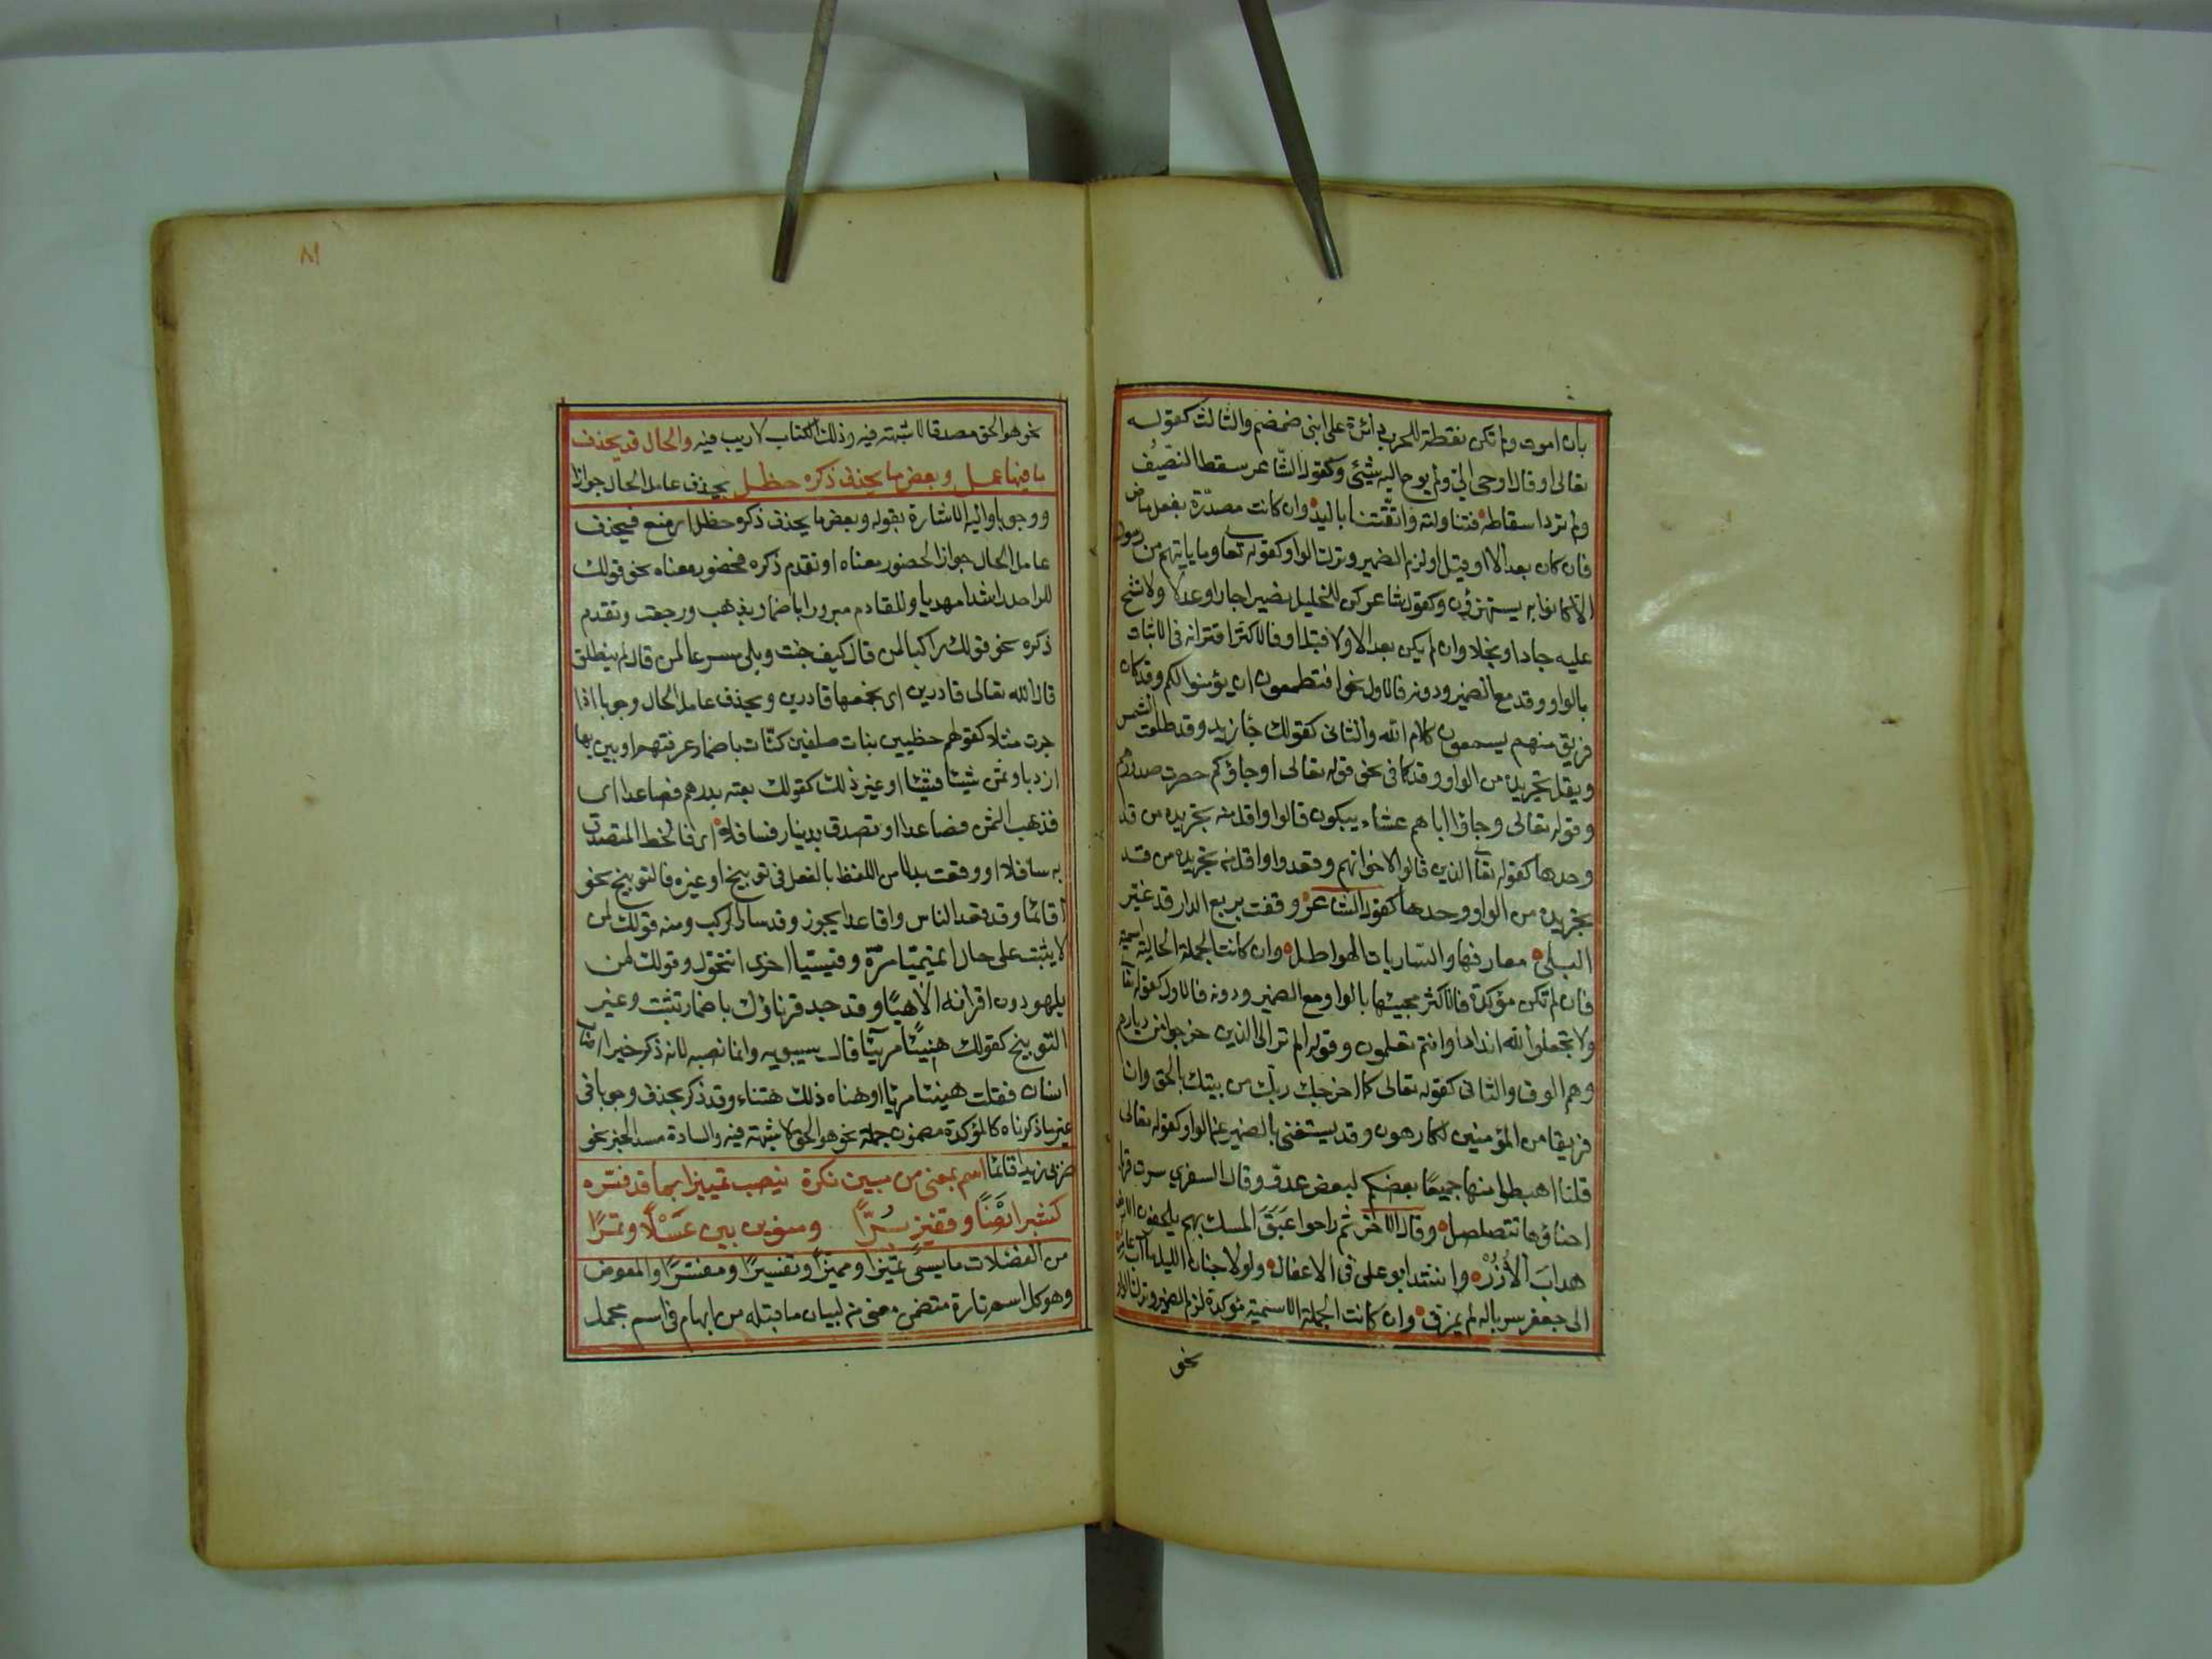 بان اموت ولم تكن نقطة للحرب دائرة على ابنى ضمضم والثالث كقوله
تعالى او قال اوحى الي ولم يوح اليه شئ وكقول الشاعر سقط النصيف
ولم ترد اسقاطه فتناولته واتقتنا باليد وان كانت مصدرة بفعل ماض
فان كان بعد الا او قبل او لزم الضمير وترك الواو كقوله تعا وما ياتيهم من رسول
الا كانوا به يستهزؤن وكقول شاعر كن للخليل نصيرا جار او عدلا ولا تشح
عليه جاد او بخلا وان لم يكن بعد الا ولا قبل او فالاكثر اقترانه فى الاثبات
بالواو وقد مع الضمير ودونه فالاول نحو افتطمعون ان يؤمنوا لكم وقد كان
فريق منهم يسمعون كلام الله والثانى كقولك جاء زيد وقد طلعت الشمس
ويقل تجريده من الواو وقد كما فى نحو قوله تعالى او جاؤكم حصرت صدورهم
وقوله تعالى وجاؤا اباهم عشاء يبكون قالوا واقل منه تجريده من قد
وحدها كقوله تعا الذين قالوا لاخوانهم وقعدوا واقل منه تجريده من قد
بتجريده من الواو وحدها كقول الشاعر وقفت بربع الدار قد غير
البلى معارفها والساريات الهواطل وان كانت الجملة الحالية اسمية
فان لم تكن مؤكدة فالاكثر مجيئها بالواو مع الضمير ودونه فالاول كقوله تعا
ولا تجعلوا لله اندادا وانتم تعلمون وقوله الم تر الى الذين خرجوا من ديارهم
وهم الوف والثانى كقوله تعالى كما اخرجك ربك من بيتك بالحق وان
فريقا من المؤمنين لكارهون وقد يستغنى بالضمير عن الواو كقوله تعالى
قلنا اهبطوا منها جميعا بعضكم لبعض عدو وقال الشنفري سرت قربا
احناؤها تتصلصل وقال الآخر ثم راحوا عبق المسك بهم يلحفون الارض
هداب الأزر وانشد ابو على فى الاغفال ولولا جنان الليل ما آب عامر
الى جعفر سرباله لم يمزق وان كانت الجملة الاسمية مؤكدة لزم الضمير وترك الواو
نحو
٨١
نحو هو الحق مصدقا لا شبهة فيه وذلك الكتاب لا ريب فيه والحال قد يحذف
ما فيها عمل وبعض ما يحذف ذكره حظل يحذف عامل الحال جوازا
ووجوبا واليه الاشارة بقوله وبعض ما يحذف ذكره حظل اى منع فيحذف
عامل الحال جوازا لحضور معناه او تقدم ذكره فحضور معناه نحو قولك
للراحل راشدا مهديا وللقادم مبرورا باضمار يذهب ورجعت وتقدم
ذكره نحو قولك راكبا لمن قال كيف جئت وبلى مسرعا لمن قال لم ينطلق
قال الله تعالى قادرين اى نجمعها قادرين ويحذف عامل الحال وجوبا اذا
جرت مثلا كقولهم حظيين بنات صلفين كنات باضمار عرفتهم او بين بها
ازدياد ثمن شيئا فشيئا او غير ذلك كقولك بعته بدرهم فصاعدا اى
فذهب الثمن فصاعدا او تصدق بدينار فسافلا اى فانحط المتصدق
به سافلا او وقعت بدلا من اللفظ بالفعل فى توبيخ او غيره فالتوبيخ نحو
اقائما وقد قعد الناس واقاعدا يجوز وقد سار الركب ومنه قولك لمن
لا يثبت على حال اتميميا مرة وقيسيا اخرى اتتحول وقولك لمن
يلهو دون اقرانه الاهيا وقد جد قرناؤك باضمار تثبت وغير
التوبيخ كقولك هنيئا مريئا قال سيبويه وانما نصبه لانه ذكر خيرا اصاب
انسان فقلت هنيئا مريئا او هناه ذلك هنئا وقد ذكر يحذف وجوبا فى
غير ما ذكرناه كالمؤكدة مضمون جملة نحو هو الحق لا شبهة فيه والسادة مسد الخبر نحو
ضربى زيدا قائما اسم بمعنى من مبين نكرة ينصب تمييزا بما قد فسره
كشبر ارضا وقفيز برا ومنوين بين عسلا وتمرا
من الفضلات ما يسمى تمييزا ومميزا وتفسيرا ومفسرا والمعوض
وهو كل اسم نكرة متضمن معنى من لبيان ما قبله من ابهام فى اسم مجمل